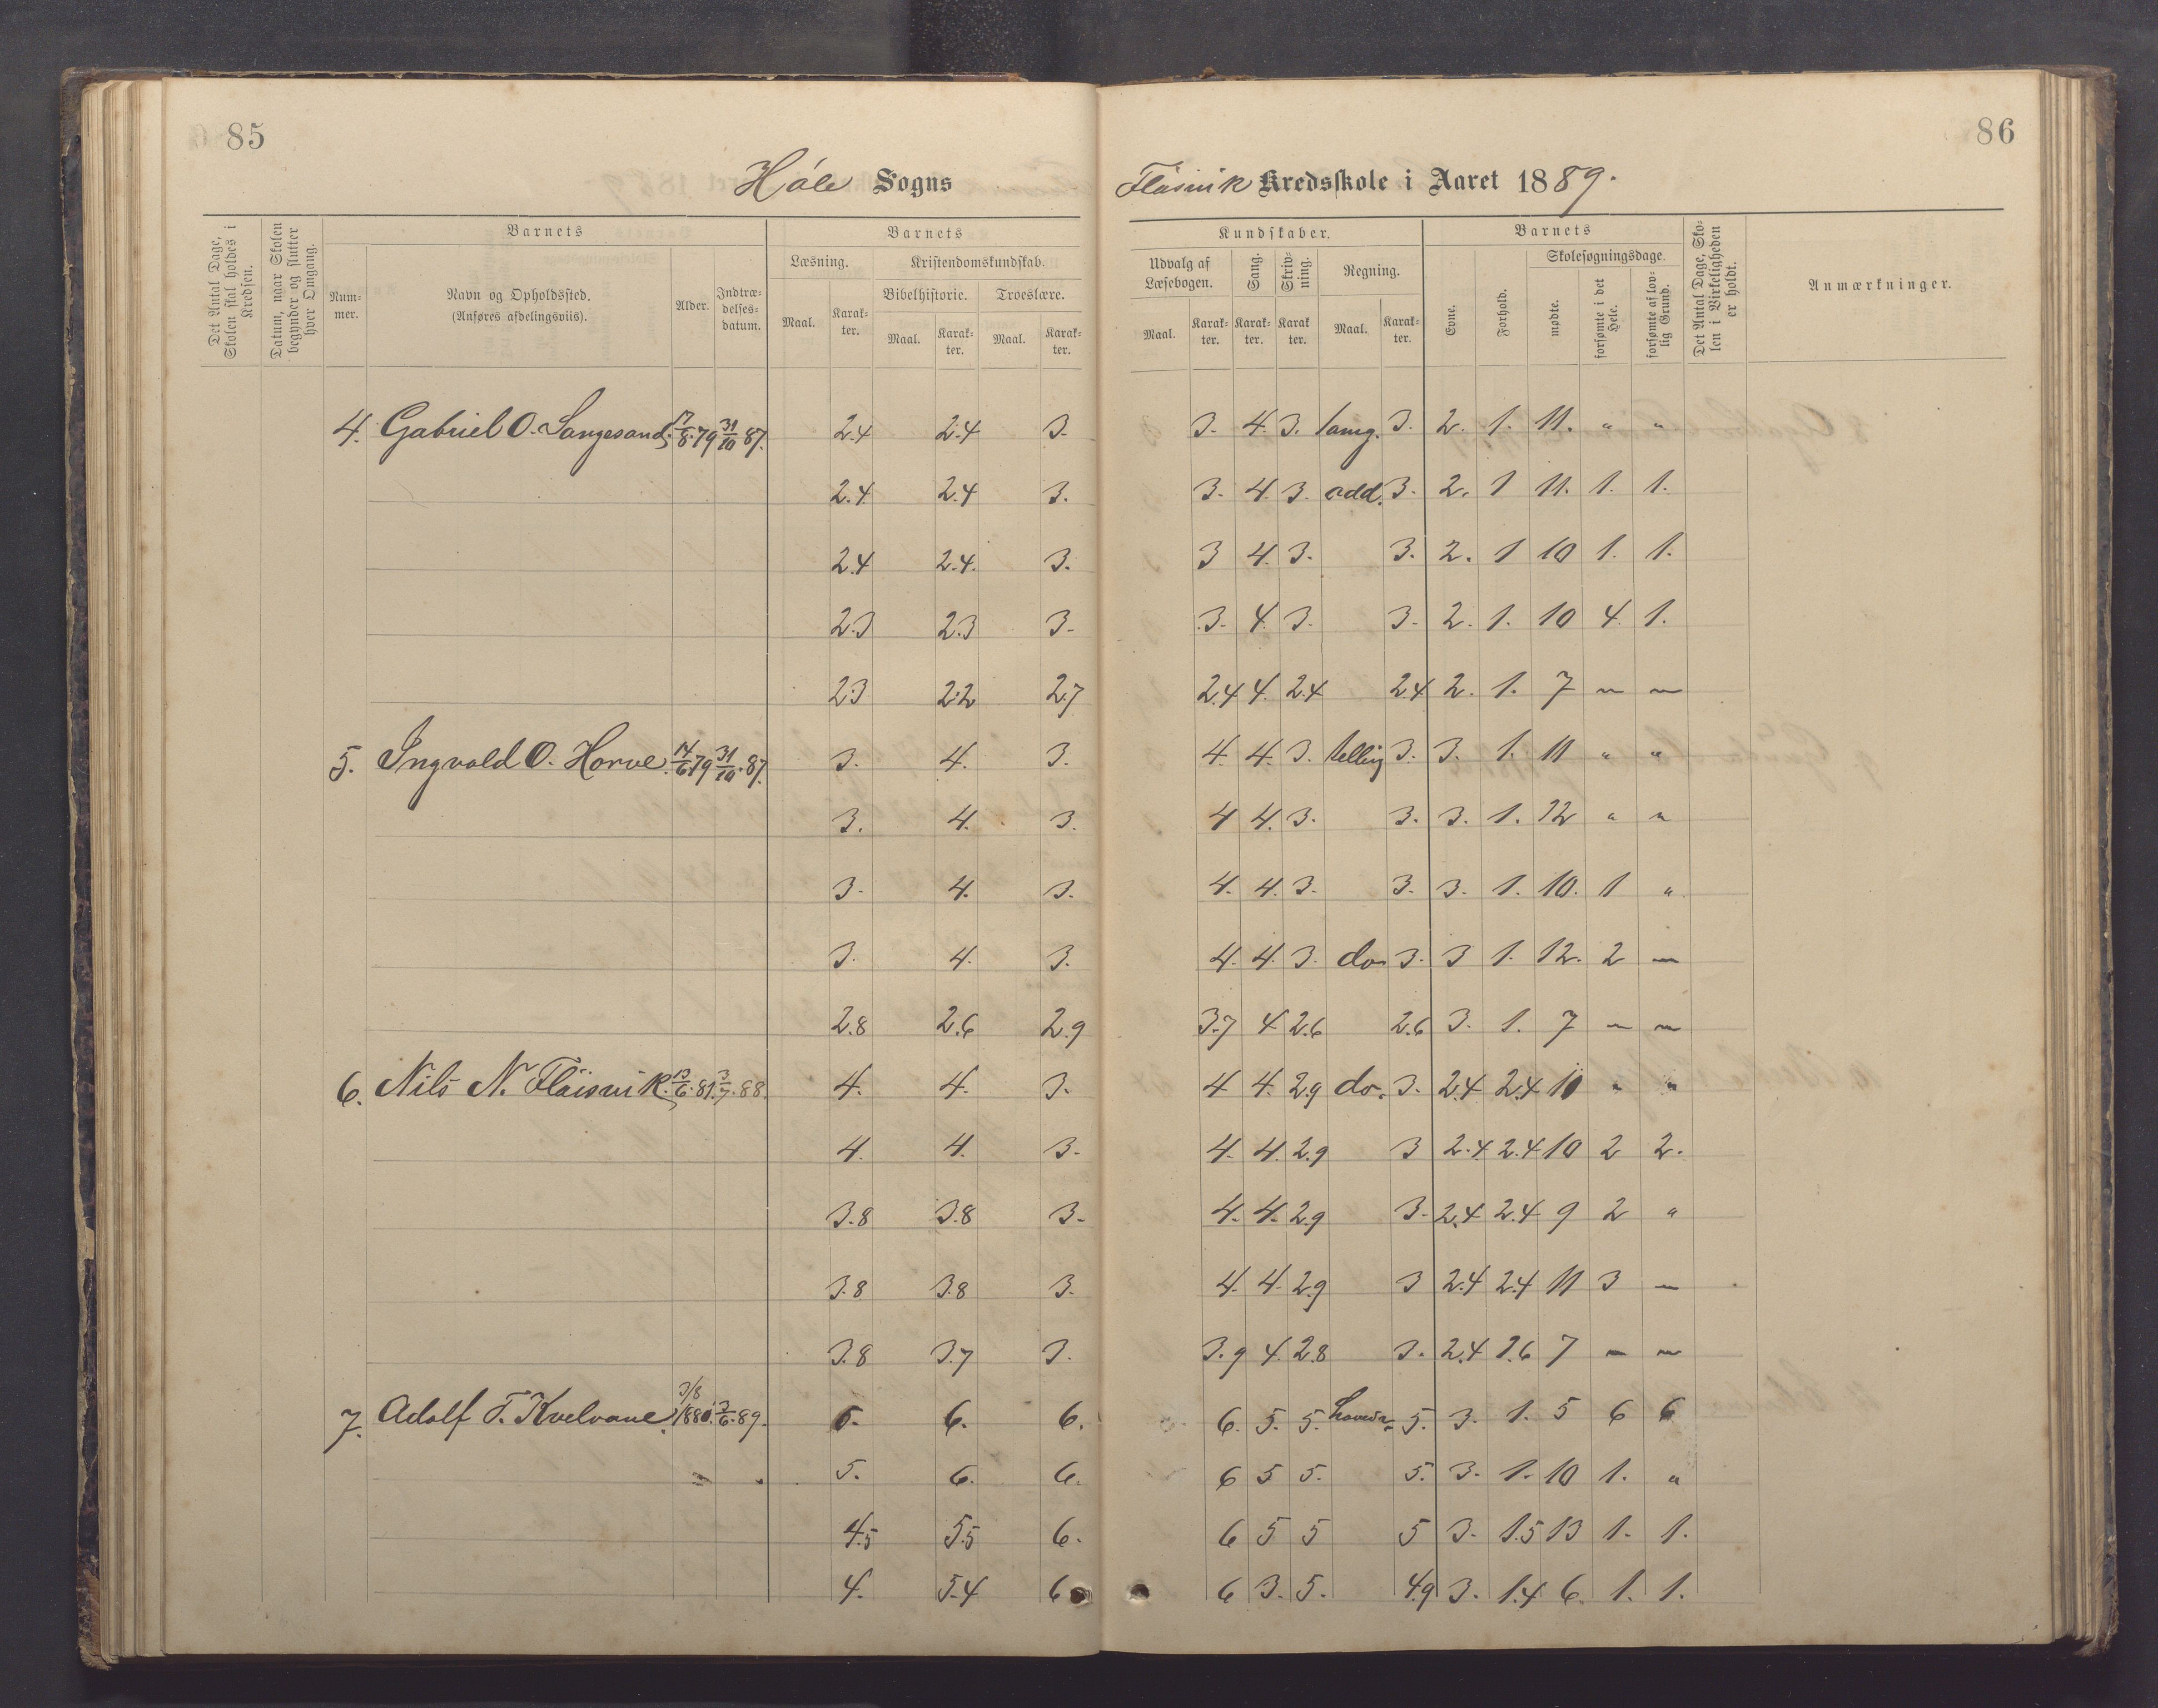 85
86
Høle Sogns
Fløisvik Kredsskole i Aaret 1889.
Det Antal Dage, Skolen skal holdes i Kredsen.
Datum, naar Skolen begynder og slutter hver Omgang.
Barnets
Nummer.
Navn og Opholdssted.
(Anføres afdelingsviis).
Alder.
Indtrædelsesdatum.
Barnets
Læsning.
Maal.
Karakter.
Kristendomskundskab.
Bibelhistorie.
Maal.
Karakter.
Troeslære.
Maal.
Karakter.
Kundskaber.
Udvalg af Læsebogen.
Maal.
Karakter.
Sang.
Karakter.
Skrivning.
Karakter.
Regning.
Maal.
Karakter.
Barnets
Evne.
Forhold.
Skolesøgningsdage.
mødte.
forsømte i det Hele.
forsømte af lovlig Grund.
Det Antal Dage, Skolen i Virkeligheden er holdt.
Anmærkninger.
4. Gabriel O. Sangesand. 17/8.79 31/10 87. 2.4 2.4 3. 3. 4. 3. 3. 2. 1. 11. " "
2.4 2.4 3. 3. 4. 3. add. 3. 2. 1 11. 1. 1.
2.4 2.4. 3. 3 4. 3. 3. 2. 1 10 1. 1.
2.3 2.3 3. 3. 4. 3. 3. 2. 1. 10 4. 1.
2.3 2.2 2.7 2.4 4. 2.4 2.4 2. 1. 7 — —
5. Ingvald O. Horve. 14/6 79 31/10.87. 3. 4. 3. 4. 4. 3. telling 3. 3. 1. 11 " "
3. 4. 3. 4 4. 3. 3. 3. 1. 12 " "
3. 4. 3. 4. 4. 3. 3. 3. 1. 10. 1 "
3. 4. 3. 4. 4. 3. do 3. 3 1. 12. 2 —
2.8 2.6 2.9 3.7 4 2.6 2.6 3. 1. 7 — —
6. Nils N. Fløisvik. 13/6.81. 3/7.88. 4. 4. 3. 4 4. 2.9 do. 3. 2.4 2.4 10 " "
4. 4. 3. 4. 4. 2.9 3 2.4 2.4 10 2 2.
3.8 3.8 3. 4. 4. 2.9 3. 2.4 2.4 9 2 "
3.8 3.8 3. 4. 4. 2.9 3 2.4 2.4 11 3 —
3.8 3.7 3. 3.9 4. 2.8 3. 2.4 2.6 7 — —
7. Adolf T. Kvelvane. 3/8 1880. 3/6.89. 6. 6. 6. 5. 5. 5. 3. 1. 5 6 6
5. 6. 6. 6 5 5. 5. 3. 1. 10 1. "
4.5 5.5 6. 6 5 5 5 3. 1.5 13 1. 1.
4. 5.4 6 6 3. 5. 4.9 3. 1.4 6. 1. 1.